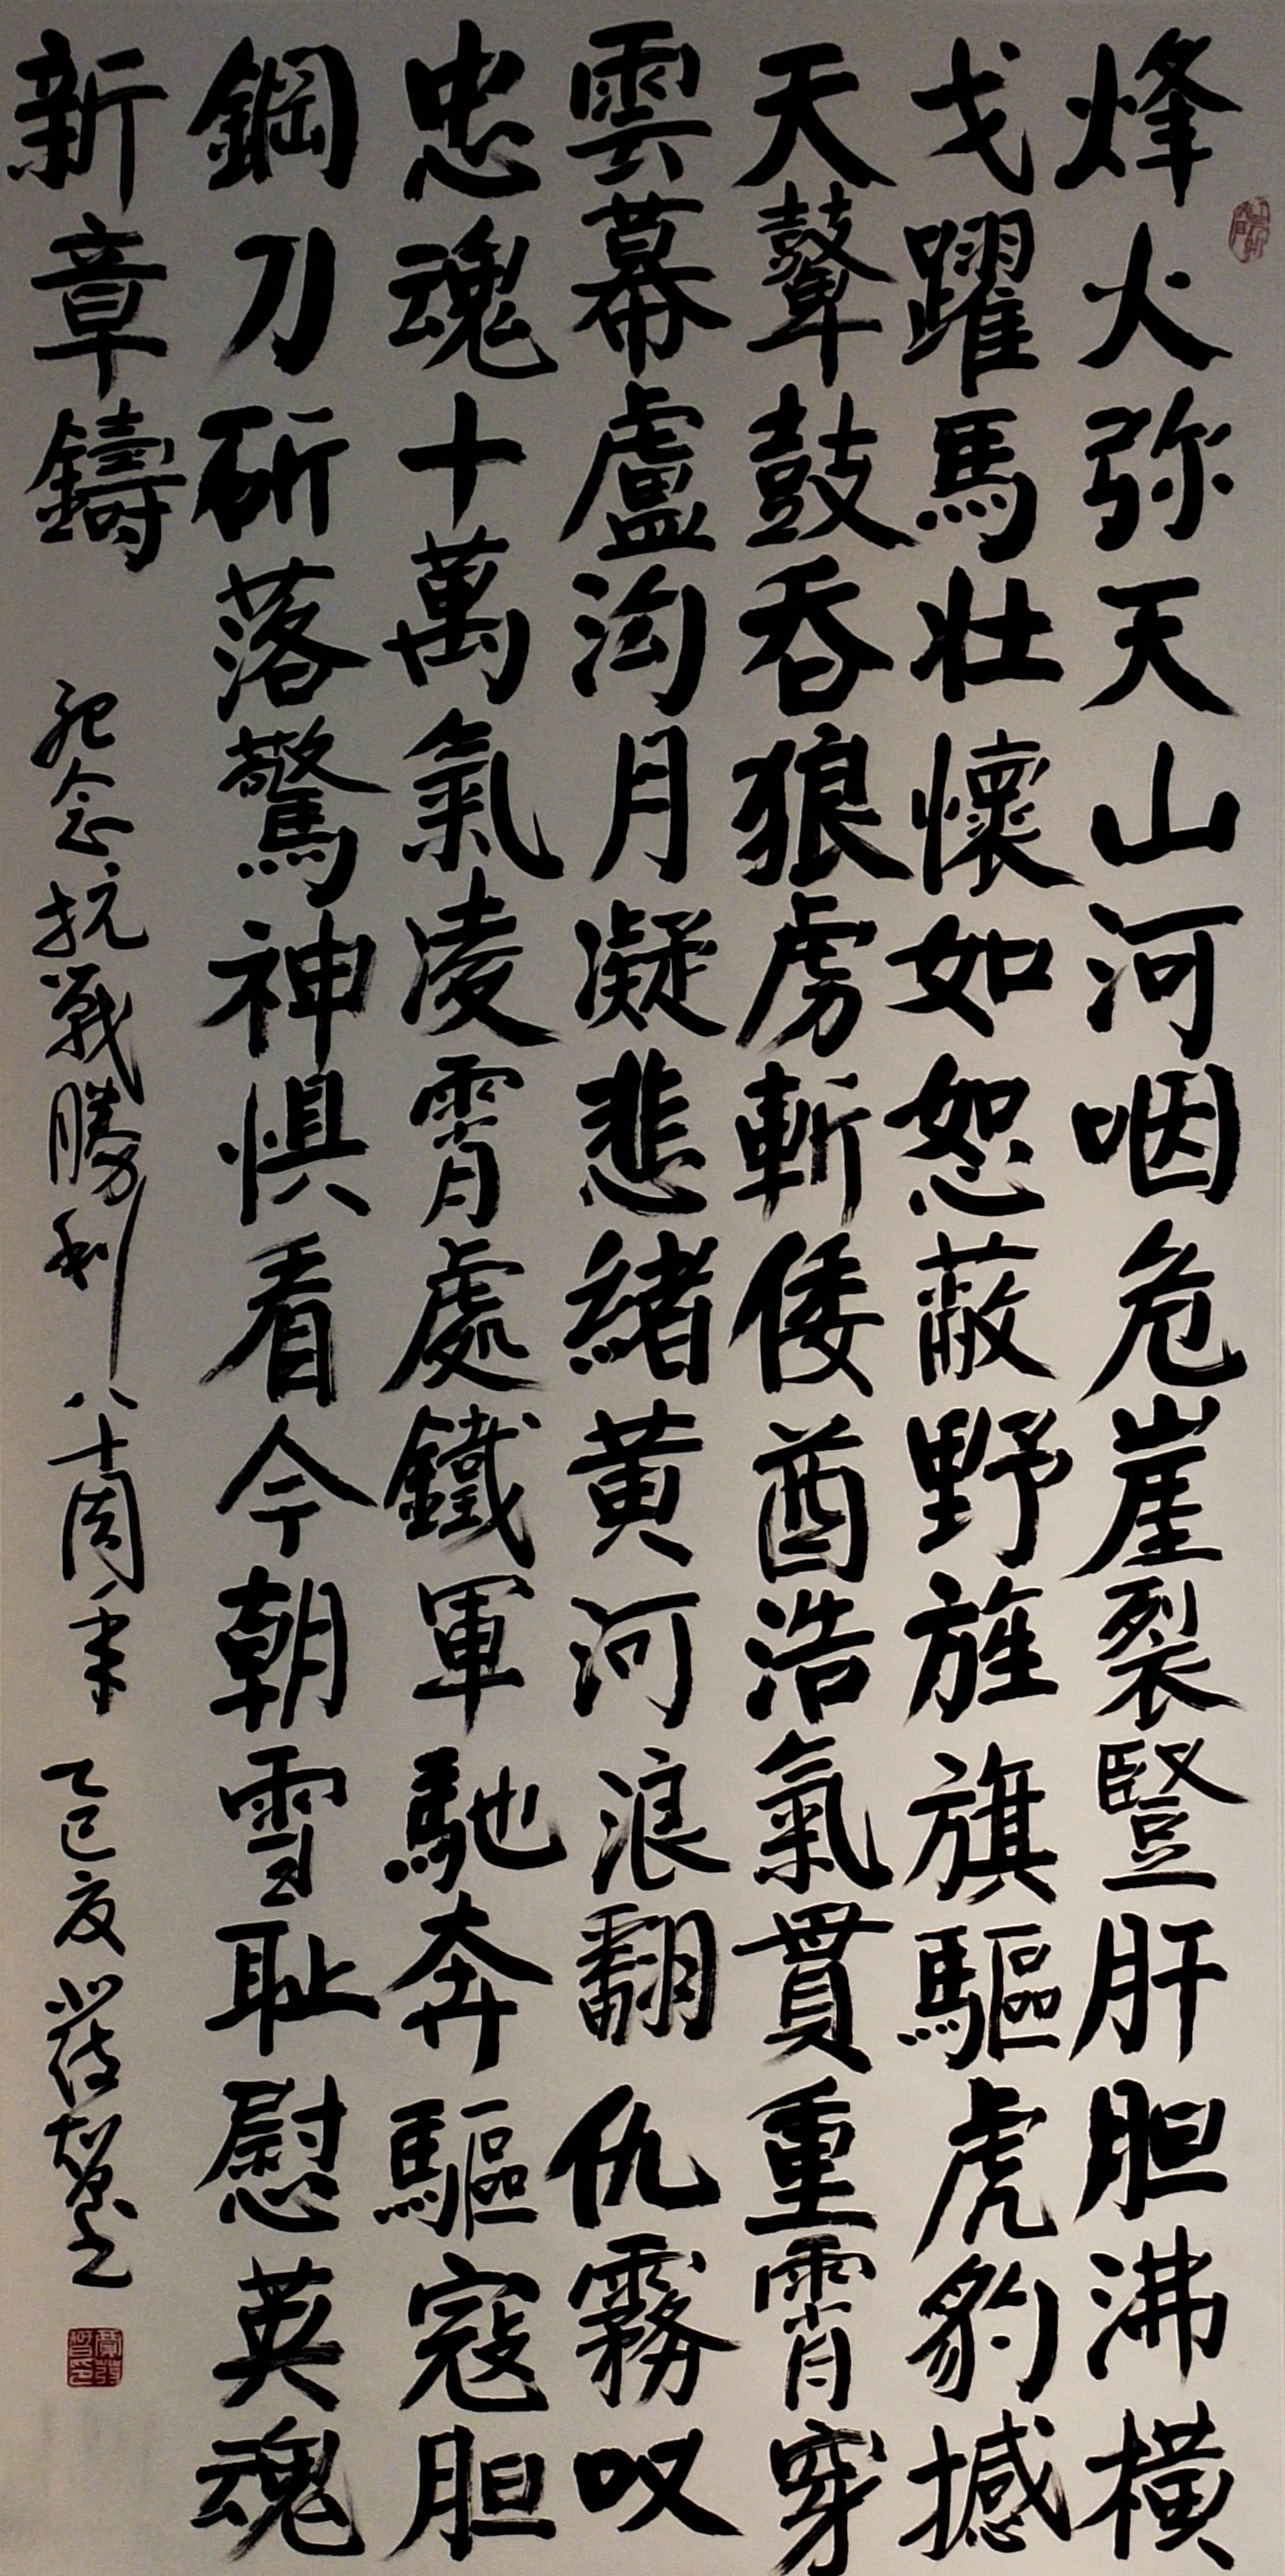 烽火弥天山河咽危崖裂豎肝胆沸橫
戈躍馬壯懷如恕蔽野旌旗驅虎豹撼
天鼙鼓吞狼虜斬倭酋浩氣貫重霄穿
雲幕盧沟月凝悲緒黃河浪翻仇霧叹
忠魂十萬氣凌霄處鐵軍馳奔驅寇胆
鋼刀斫落驚神惧看今朝雪耻慰英魂
新章鑄
紀念抗戰勝利八十周年
乙巳夏